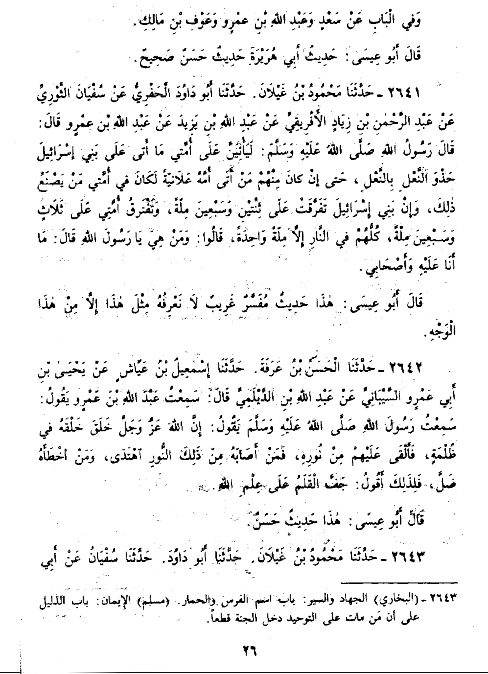 وَفِي الْبَابِ عَنْ سَعْدٍ وَعَبْدِ اللهِ بْنِ عَمْرٍو وَعَوْفِ بْنِ مَالِكٍ.
قَالَ أَبُو عِيسَى: حَدِيثُ أَبِي هُرَيْرَةَ حَدِيثٌ حَسَنٌ صَحِيحٌ.
٢٦٤١ - حَدَّثَنَا مَحْمُودُ بْنُ غَيْلَانَ. حَدَّثَنَا أَبُو دَاوُدَ الْحَفَرِيُّ عَنْ سُفْيَانَ الثَّوْرِيِّ
عَنْ عَبْدِ الرَّحْمٰنِ بْنِ زِيَادٍ الْأَفْرِيقِيِّ عَنْ عَبْدِ اللهِ بْنِ يَزِيدَ عَنْ عَبْدِ اللهِ بْنِ عَمْرٍو قَالَ:
قَالَ رَسُولُ اللهِ صَلَّى اللهُ عَلَيْهِ وَسَلَّمَ: لَيَأْتِيَنَّ عَلَى أُمَّتِي مَا أَتَى عَلَى بَنِي إِسْرَائِيلَ
حَذْوَ النَّعْلِ بِالنَّعْلِ، حَتى إِنْ كَانَ مِنْهُمْ مَنْ أَتَى أُمَّهُ عَلَانِيَةً لَكَانَ فِي أُمَّتِي مَنْ يَصْنَعُ
ذٰلِكَ، وَإِنَّ بَنِي إِسْرَائِيلَ تَفَرَّقَتْ عَلَى ثِنْتَيْنِ وَسَبْعِينَ مِلَّةً، وَتَفْتَرِقُ أُمَّتِي عَلَى ثَلَاثٍ
وَسَبْعِينَ مِلَّةً، كُلُّهُمْ فِي النَّارِ إِلَّا مِلَّةً وَاحِدَةً، قَالُوا: وَمَنْ هِيَ يَا رَسُولَ اللهِ قَالَ: مَا
أَنَا عَلَيْهِ وَأَصْحَابِي.
قَالَ أَبُو عِيسَى: هٰذَا حَدِيثٌ مُفَسَّرٌ غَرِيبٌ لَا نَعْرِفُهُ مِثْلَ هٰذَا إِلَّا مِنْ هٰذَا
الْوَجْهِ.
٢٦٤٢ - حَدَّثَنَا الْحَسَنُ بْنُ عَرَفَةَ. حَدَّثَنَا إِسْمٰعِيلُ بْنُ عَيَّاشٍ عَنْ يَحْيَى بْنِ
أَبِي عَمْرٍو السَّيْبَانِيِّ عَنْ عَبْدِ اللهِ بْنِ الدَّيْلَمِيِّ قَالَ: سَمِعْتُ عَبْدَ اللهِ بْنَ عَمْرٍو يَقُولُ:
سَمِعْتُ رَسُولَ اللهِ صَلَّى اللهُ عَلَيْهِ وَسَلَّمَ يَقُولُ: إِنَّ اللهَ عَزَّ وَجَلَّ خَلَقَ خَلْقَهُ فِي
ظُلْمَةٍ، فَأَلْقَى عَلَيْهِمْ مِنْ نُورِهِ، فَمَنْ أَصَابَهُ مِنْ ذٰلِكَ النُّورِ اهْتَدَى، وَمَنْ أَخْطَأَهُ
ضَلَّ، فَلِذٰلِكَ أَقُولُ: جَفَّ الْقَلَمُ عَلَى عِلْمِ اللهِ.
قَالَ أَبُو عِيسَى: هٰذَا حَدِيثٌ حَسَنٌ.
٢٦٤٣ - حَدَّثَنَا مَحْمُودُ بْنُ غَيْلَانَ. حَدَّثَنَا أَبُو دَاوُدَ. حَدَّثَنَا سُفْيَانُ عَنْ أَبِي
٢٦٤٣ - (البخاري) الجهاد والسير: باب اسم الفرس والحمار. (مسلم) الإيمان: باب الدليل
على أن مَن مات على التوحيد دخل الجنة قطعاً.
٢٦